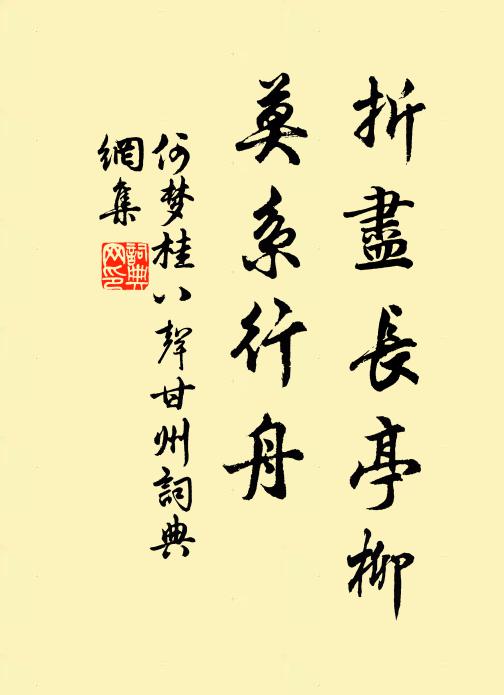 折盡長亭柳
莫系行舟
何梦桂八聲甘州詞典
網集
詞典网印